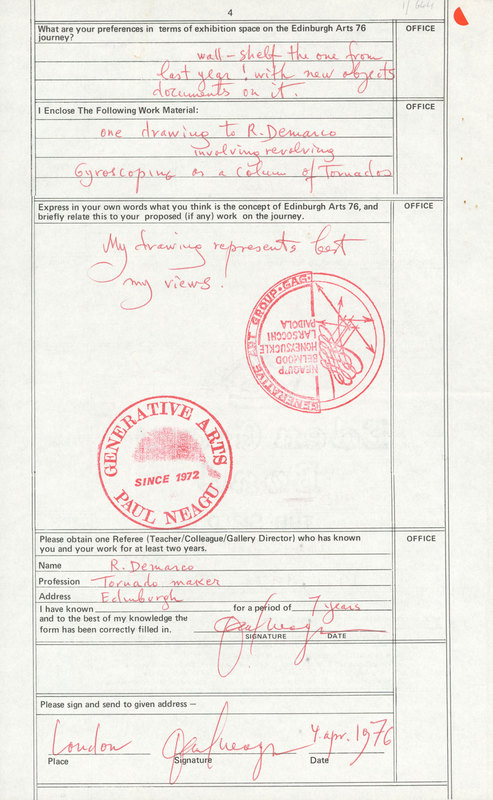 1/664
4
What are your preferences in terms of exhibition space on the Edinburgh Arts 76
journey?
OFFICE
wall-shelf the one from
last year! with new objects
documents on it.
I Enclose The Following Work Material:
OFFICE
one drawing to R. Demarco
involving revolving
Gyroscoping as a Column of Tornados
Express in your own words what you think is the concept of Edinburgh Arts 76, and
briefly relate this to your proposed (if any) work on the journey.
OFFICE
My drawing represents best
my views.
GENERATIVE ART GROUP·GAG·
NEAGU'P
BELMOOD
HONEYSUCKLE
LARSOCCHI
PAIDOLA
GENERATIVE ARTS
SINCE 1972
PAUL NEAGU
Please obtain one Referee (Teacher/Colleague/Gallery Director) who has known
you and your work for at least two years.
OFFICE
Name R. Demarco
Profession Tornado maker
Address Edinburgh
I have known for a period of 7 years
and to the best of my knowledge the
form has been correctly filled in.
SIGNATURE DATE
Please sign and send to given address –
London 4 apr. 1976
Place Signature Date